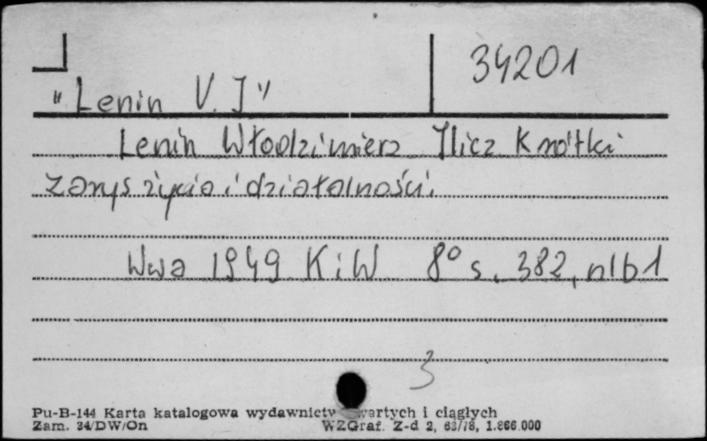 34201
"Lenin V. I"
Lenin Włodzimierz Ilicz Krótki
zarys życia i działalności.
Wwa 1949 KiW 8° s. 382, nlb 1
3
Pu-B-144 Karta katalogowa wydawnictw zwartych i ciągłych
Zam. 34/DW/On WZGraf. Z-d 2, 63/78, 1.866.000